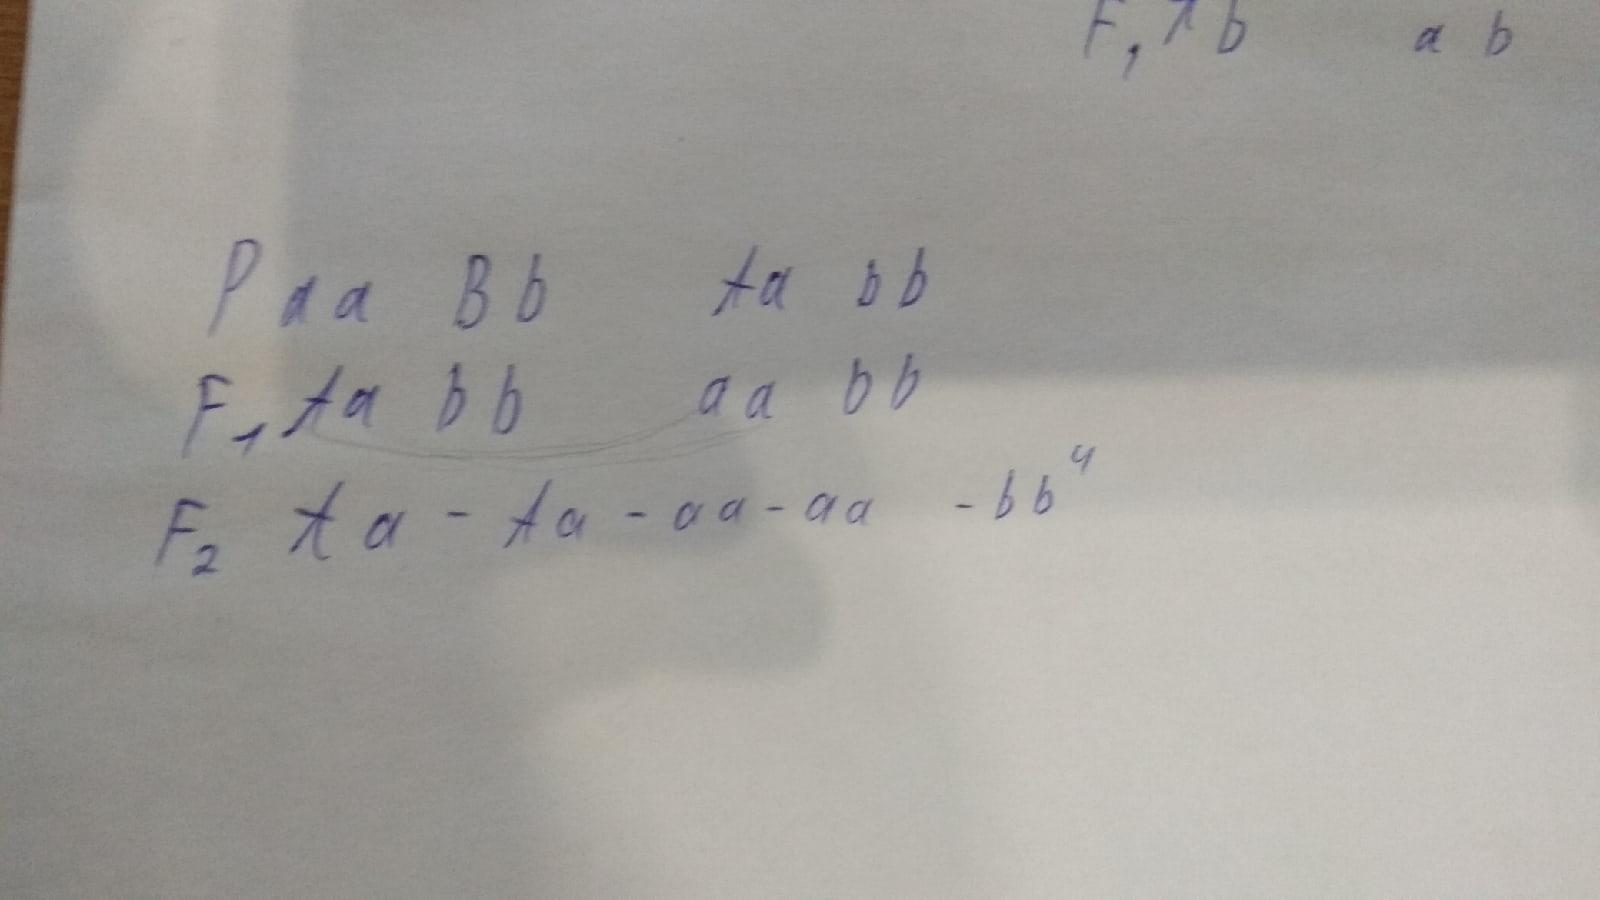 F₁ A b a b
P aa Bb Aa bb
F₁ Aa bb aa bb
F₂ Aa - Aa - aa - aa - bb⁴